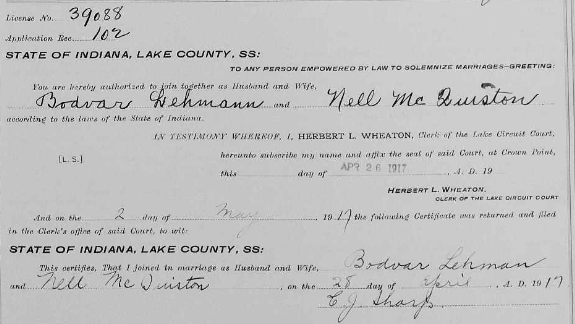 License No. 39088
Application Rec. 102
STATE OF INDIANA, LAKE COUNTY, SS:
TO ANY PERSON EMPOWERED BY LAW TO SOLEMNIZE MARRIAGES—GREETING:
You are hereby authorized to join together as Husband and Wife,
Bodvar Lehmann and Nell McQuiston
according to the laws of the State of Indiana.
IN TESTIMONY WHEREOF, I, HERBERT L. WHEATON, Clerk of the Lake Circuit Court,
[L. S.] hereunto subscribe my name and affix the seal of said Court, at Crown Point,
this day of APR 26 1917, A. D. 19
HERBERT L. WHEATON,
CLERK OF THE LAKE CIRCUIT COURT
And on the 2 day of May 1917 the following Certificate was returned and filed
in the Clerk's office of said Court, to wit:
STATE OF INDIANA, LAKE COUNTY, SS:
This certifies, That I joined in marriage as Husband and Wife, Bodvar Lehman
and Nell McQuiston, on the 28 day of April A. D. 1917
E. J. Sharp.